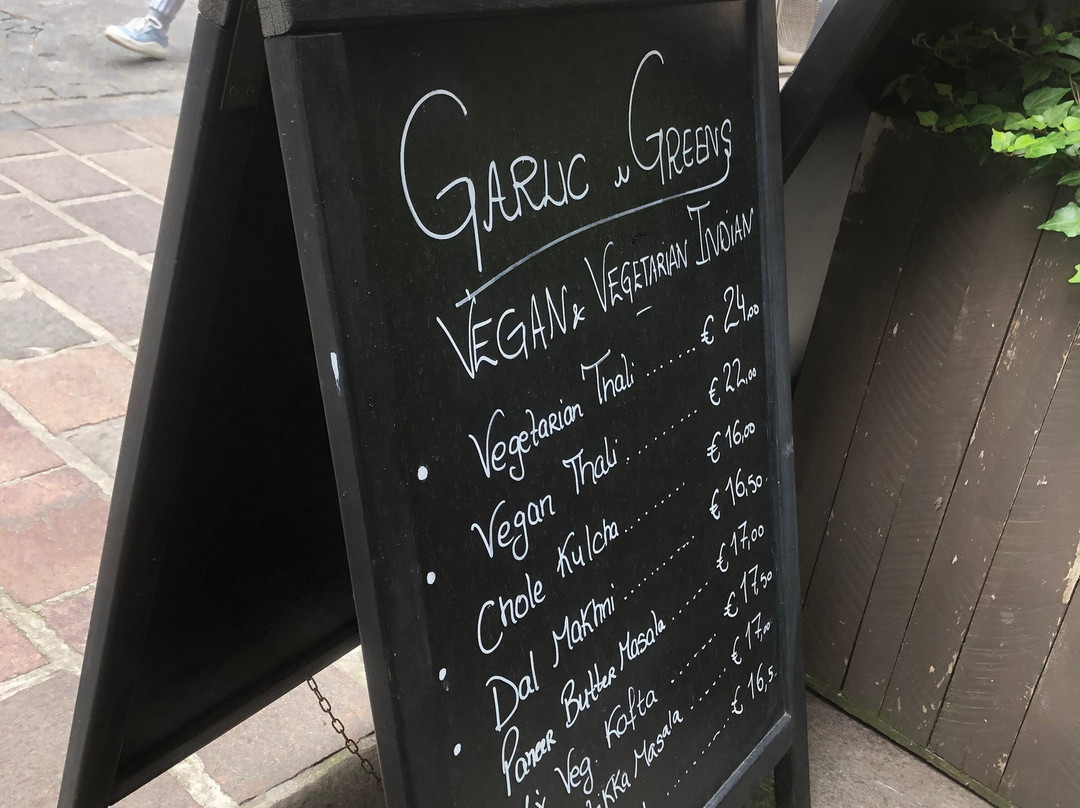 GARLIC N GREENS
VEGAN & VEGETARIAN INDIAN
• Vegetarian Thali ....... € 24,00
• Vegan Thali ......... € 22,00
• Chole Kulcha ......... € 16,00
• Dal Makhni ............ € 16,50
Paneer Butter Masala ....... € 17,00
Veg. Kofta ........ € 17,50
Masala ....... € 17,00
....... € 16,5